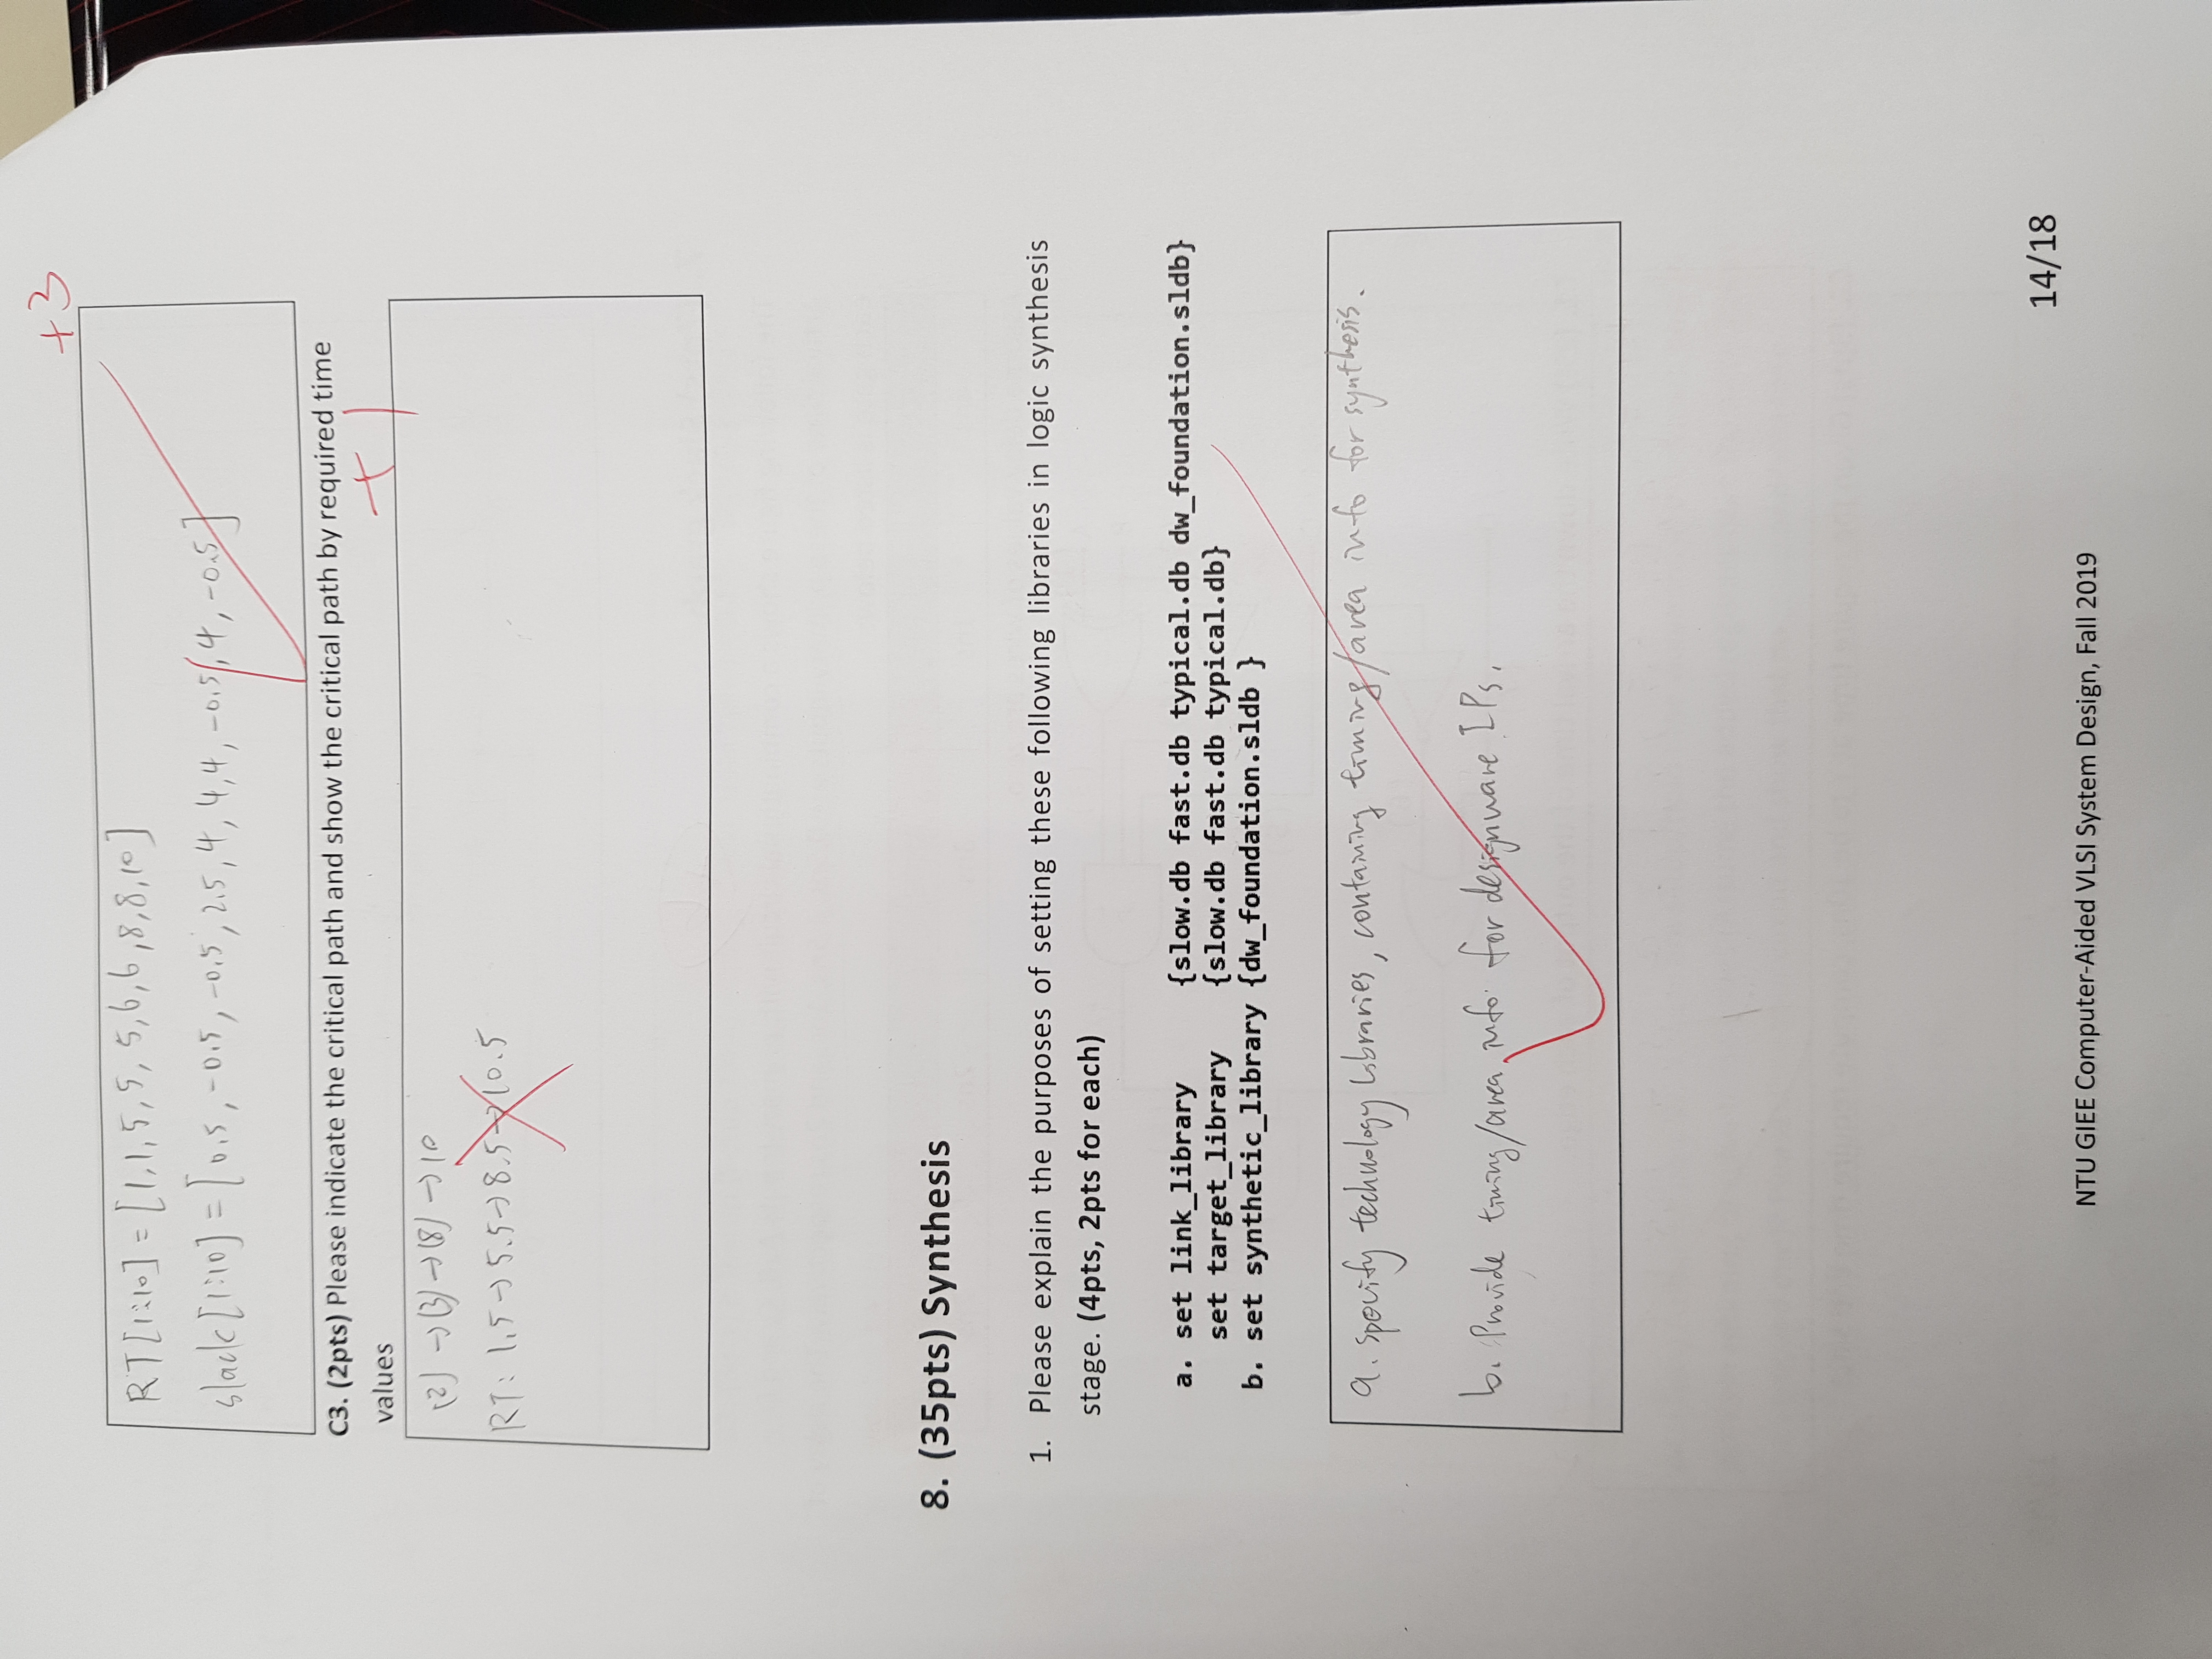 +3
RT[1:10] = [1,1,5,5,5,6,6,8,8,10]
slack[1:10] = [0.5, -0.5, -0.5, 2.5, 4, 4, 4, -0.5, 4, -0.5]
C3. (2pts) Please indicate the critical path and show the critical path by required time
values
+1
(2) → (3) → (8) → 10
RT: 1.5 → 5.5 → 8.5 → 10.5
8. (35pts) Synthesis
1. Please explain the purposes of setting these following libraries in logic synthesis
stage. (4pts, 2pts for each)
a. set link_library {slow.db fast.db typical.db dw_foundation.sldb}
set target_library {slow.db fast.db typical.db}
b. set synthetic_library {dw_foundation.sldb }
a. specify technology libraries, containing timing/area info for synthesis.
b. Provide timing/area info for designware IPs.
14/18
NTU GIEE Computer-Aided VLSI System Design, Fall 2019